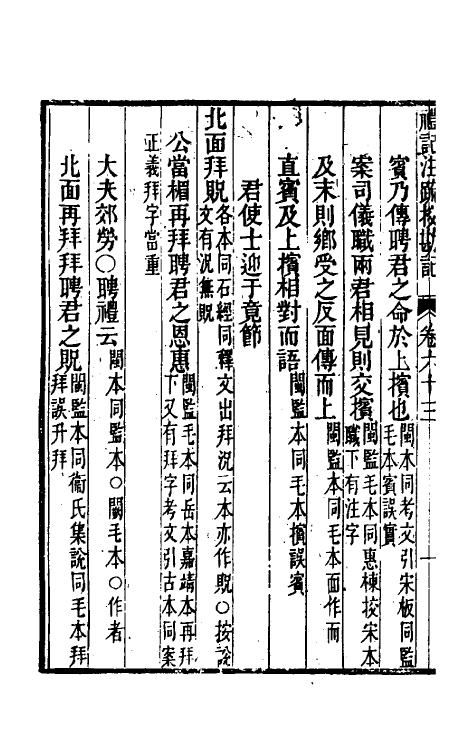 禮記注疏校勘記 卷六十三 一
賓乃傳聘君之命於上擯也 閩本同考文引宋板同監毛本賓誤實
案司儀職兩君相見則交擯 閩監毛本同惠棟挍宋本職下有注字
及末則鄉受之反面傳而上 閩監本同毛本面作而
直賓及上擯相對而語 閩監本同毛本擯誤賓
君使士迎于竟節
北面拜貺 各本同石經同釋文出拜況云本亦作貺○按說文有況無貺
公當楣再拜聘君之恩惠 閩監毛本同岳本嘉靖本再拜下又有拜字考文引古本同案
正義拜字當重
大夫郊勞○聘禮云 閩本同監本○闕毛本○作者
北面再拜拜聘君之貺 閩監本同衞氏集說同毛本拜拜誤升拜